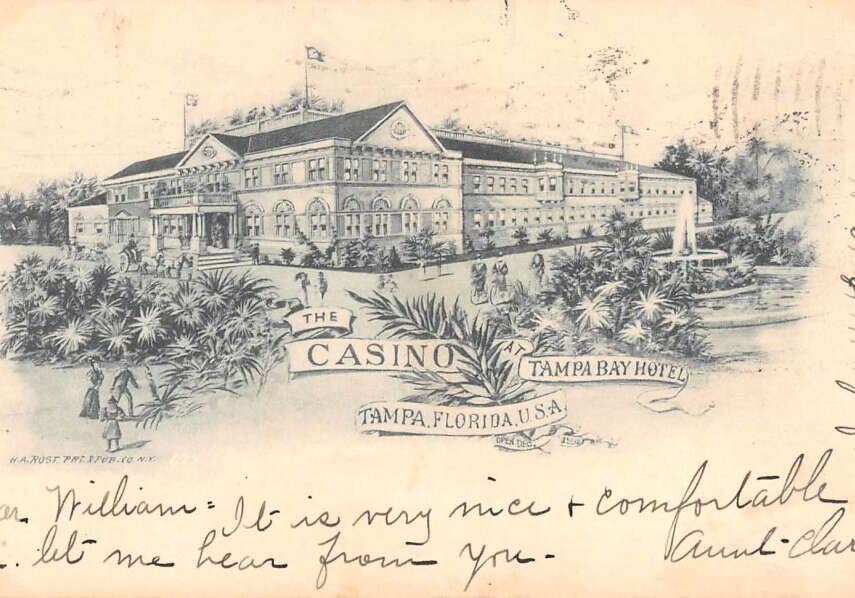 THE
CASINO
AT
TAMPA BAY HOTEL
TAMPA, FLORIDA, U.S.A.
OPEN DEC.
N.A. ROST PRT. & PUB. CO. N.Y.
William = It is very nice + comfortable
let me hear from you -
Aunt Clar